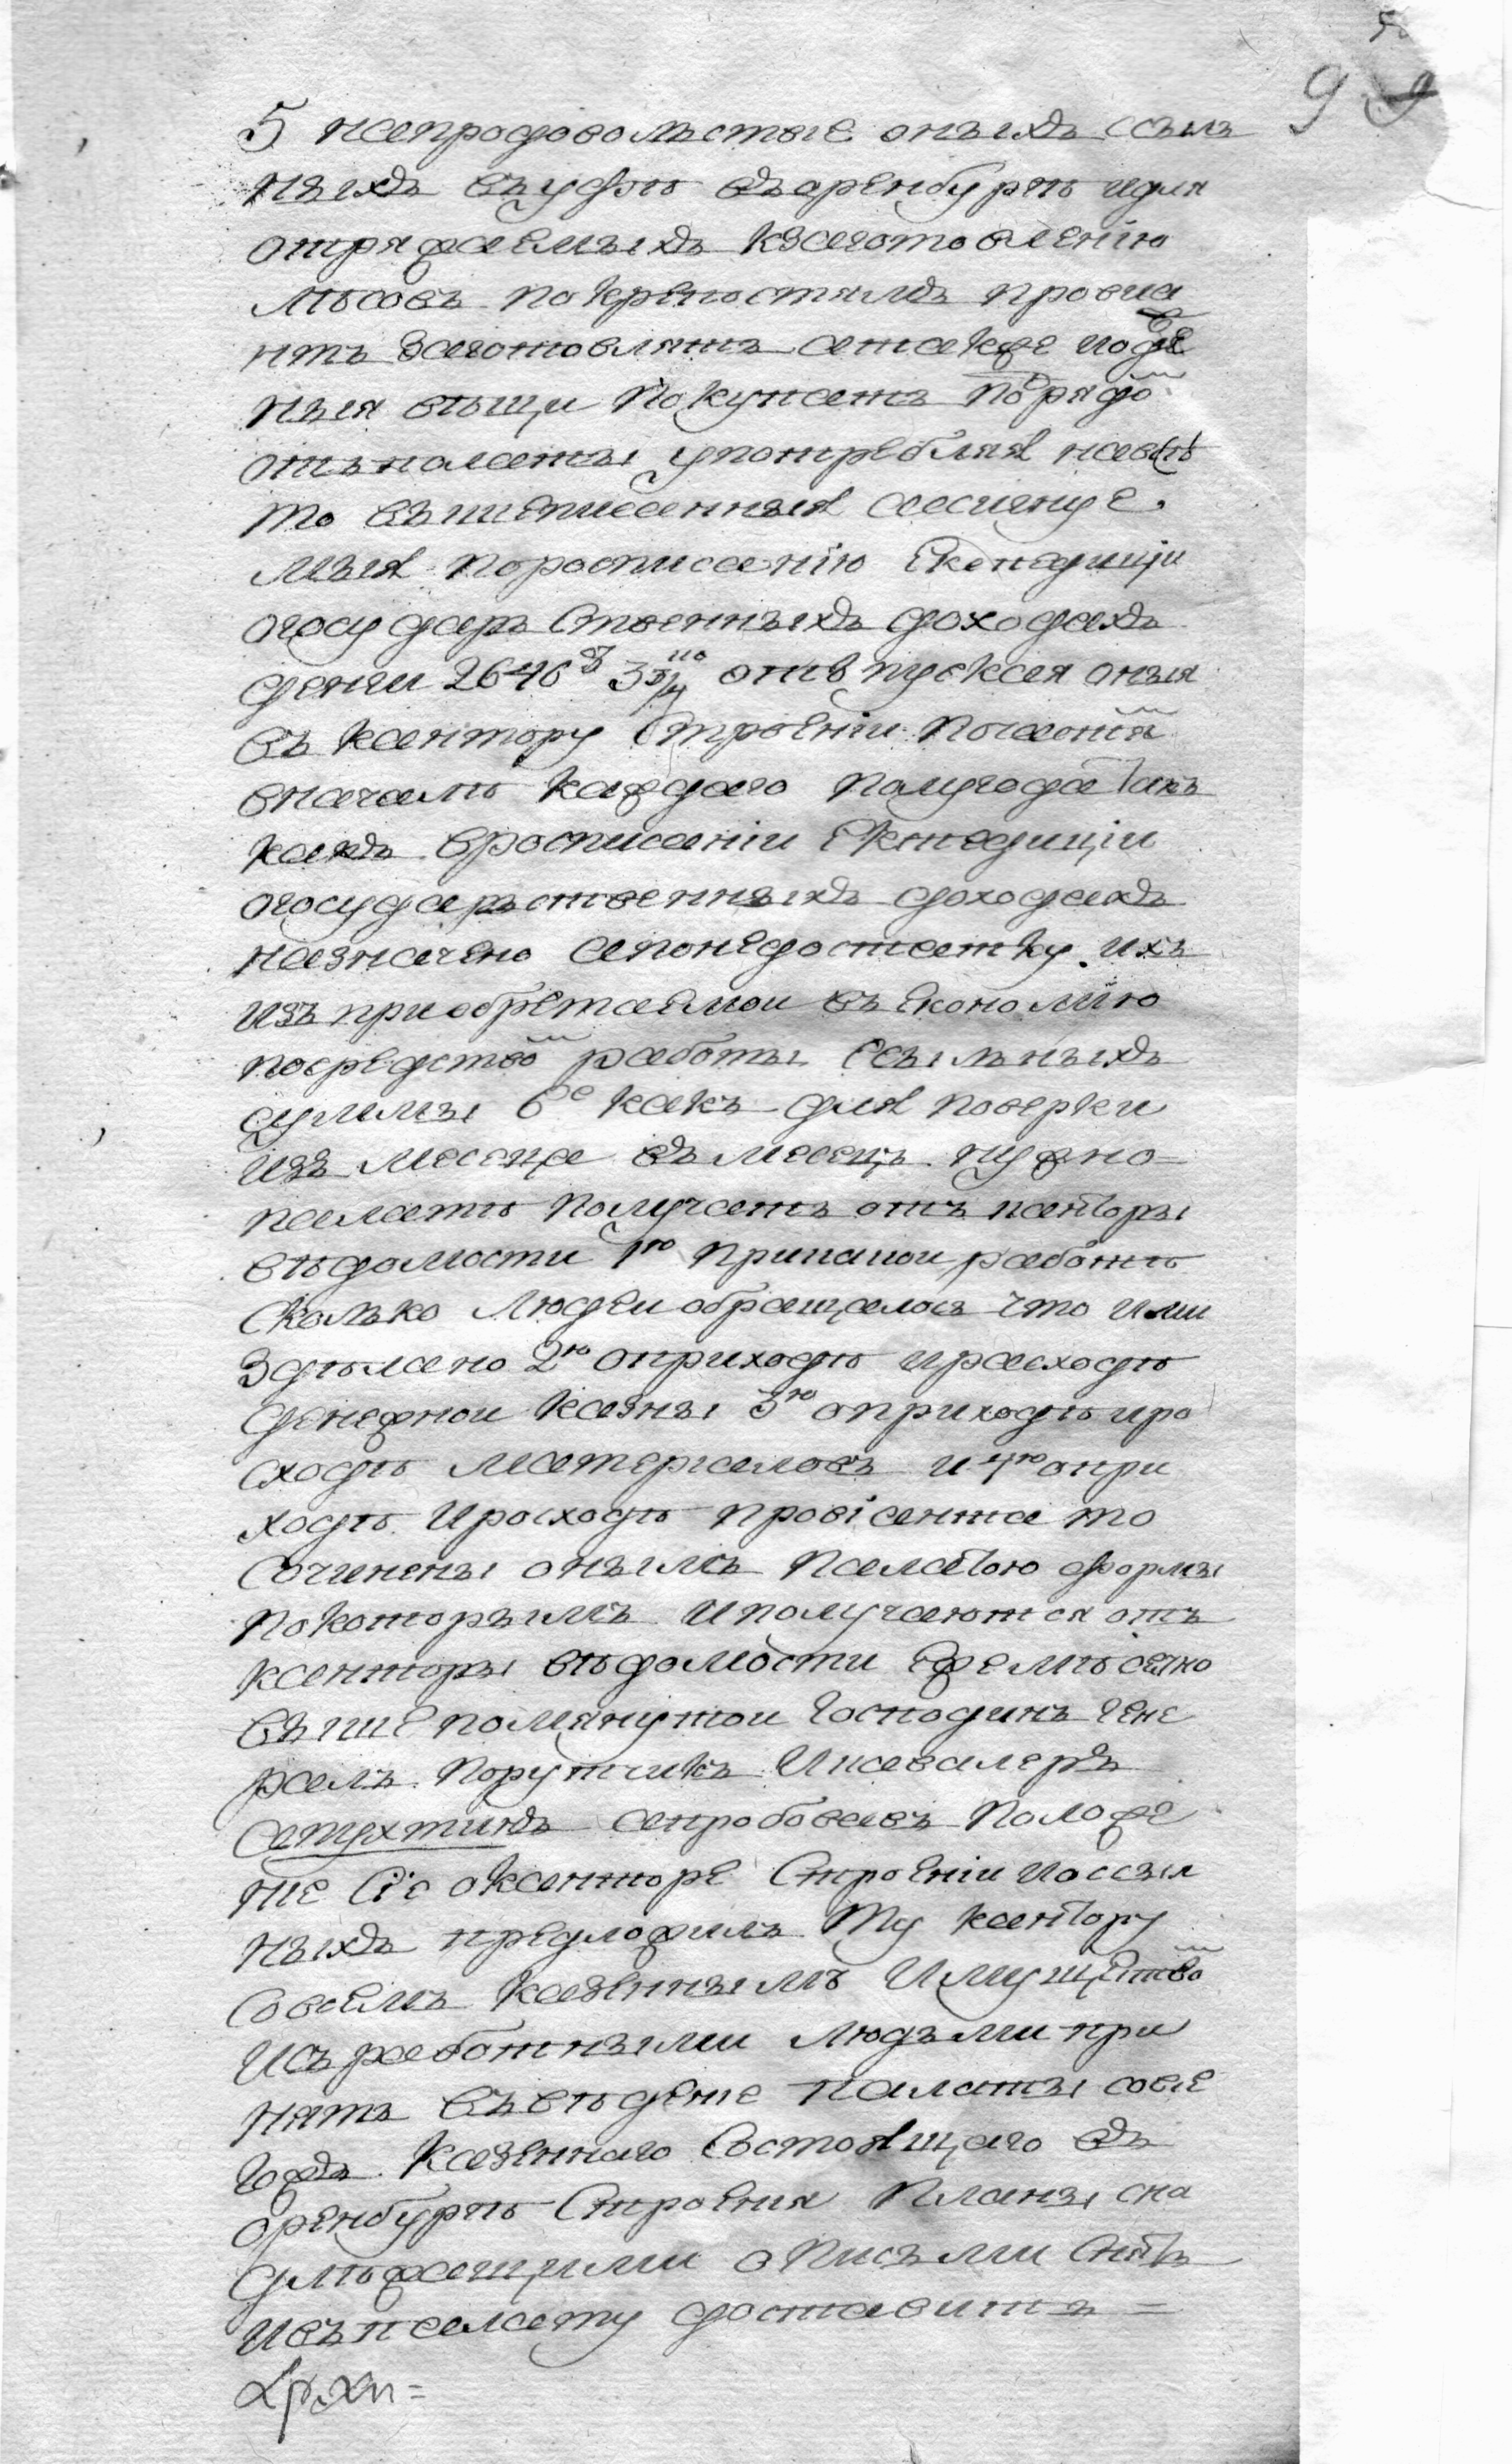 9
5 напродовольствие оныхъ ссыль
ныхъ въ уфѣ въ оренбургѣ идля
отряжаемыхъ кзаготовлению
лѣсовъ покрепостямъ провиа
нтъ заготовлять атакже иоде
ныя вѣщи покупать порядо
отъпалаты употребляя наоны
то вышеписанныя ассигнуе.
мыя поросписанїю Екзпедицїи
огосударственныхъ доходахъ
денги 2646 3 отпуская оныя
въ кантору строенїи поченыя
вначалѣ каждаго полугода такъ
какъ вросписанїи Екзпедицїи
огосударственныхъ доходахъ
назначено апонедостатку ихъ
изъ приобретаемои въ економїю
посредство работы ссыльныхъ
суммы 6е какъ для поверки
изъ месеца въ месецъ нужно=
палатѣ получать отъ канторы
вѣдомости 1ю прикакои работѣ
сколько людеи обращалось что ими
здѣлано 2ю оприходѣ ирасходѣ
денежнои казны 3ю оприходѣ ира
сходѣ матерїаловъ и 4ю опри
ходѣ ирасходѣ провїанта то
сочинены онымъ палатою формы
покоторымъ иполучаются отъ
канторы вѣдомости ежемѣсячно
вышепомянутои господинъ гене
ралъ порутчикъ икавалеръ
апухтинъ апробовавъ положе
ние сїе оканторе строенїи иоссыл
ныхъ предложилъ ту кантору
совсемъ казеннымъ имущество
исъработными людьми при
нять въвѣдение палаты авсе
годъ казеннаго состоящаго въ
оренбургѣ строения планы сна
длѣжащими описьми снять
ивъпалату доставить=